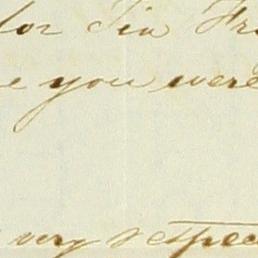 for Tin
you were
very respec